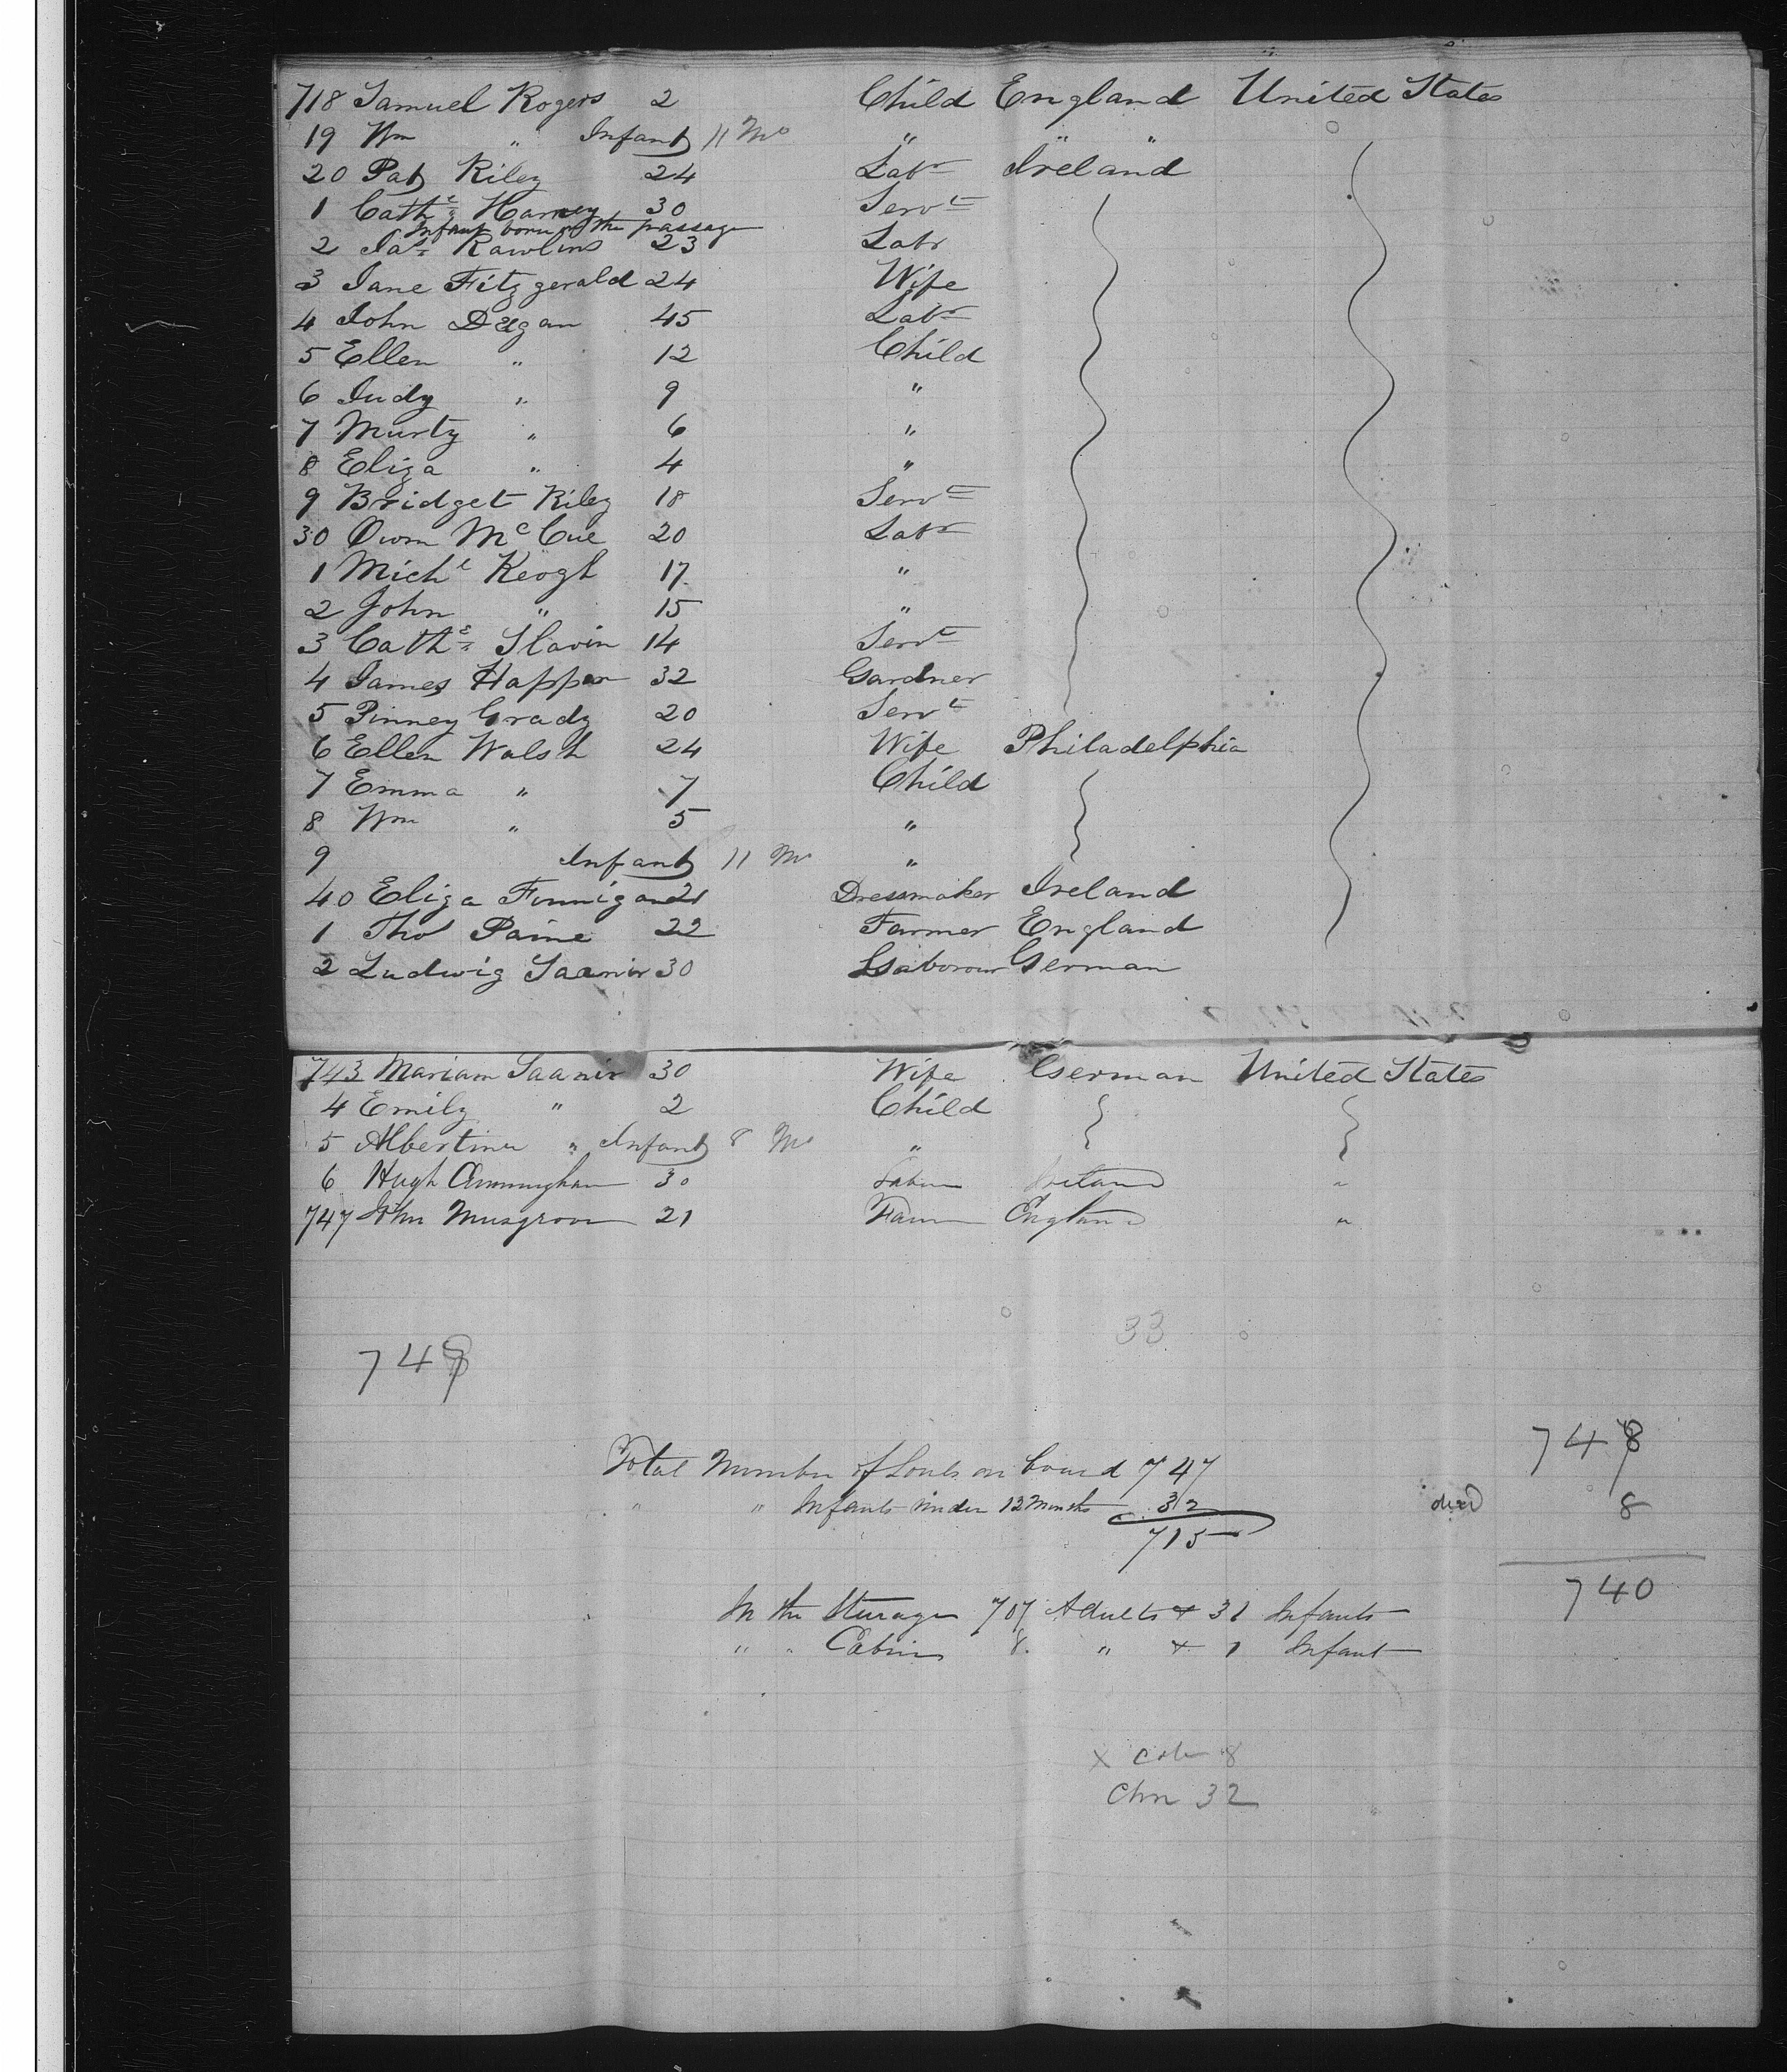 718 Samuel Rogers 2 Child England United States
19 Wm " Infant 11 Mo " " "
20 Pat Riley 24 Labr Ireland
1 Cathe Harney 30 Servt
Infant born on the passage
2 Jas Rawlins 23 Labr
3 Jane Fitzgerald 24 Wife
4 John Degan 45 Labr
5 Ellen " 12 Child
6 Judy " 9 "
7 Murty " 6 "
8 Eliza " 4 "
9 Bridget Riley 18 Servt
30 Owen McCue 20 Labr
1 Michl Keogh 17 "
2 John " 15 "
3 Cathe Slavin 14 Servt
4 James Happer 32 Gardner
5 Pinney Grady 20 Servt
6 Ellen Walsh 24 Wife Philadelphia
7 Emma " 7 Child
8 Wm " 5 "
9 Infant 11 Mo "
40 Eliza Finnigan 21 Dressmaker Ireland
1 Tho Paine 22 Farmer England
2 Ludwig Saanir 30 Laborour German
743 Mariam Saanir 30 Wife German United States
4 Emily " 2 Child
5 Albertina " Infant 8 Mo "
6 Hugh Cunningham 30 Labour Ireland "
747 John Musgrove 21 Farm England "
33
748
748
Total Number of Souls on board 747
" " Infants under 12 Months 32
died 8
715
740
In the Steerage 707 Adults + 31 Infants
" " Cabin 8 " + 1 Infant
x Cab 8
Chn 32